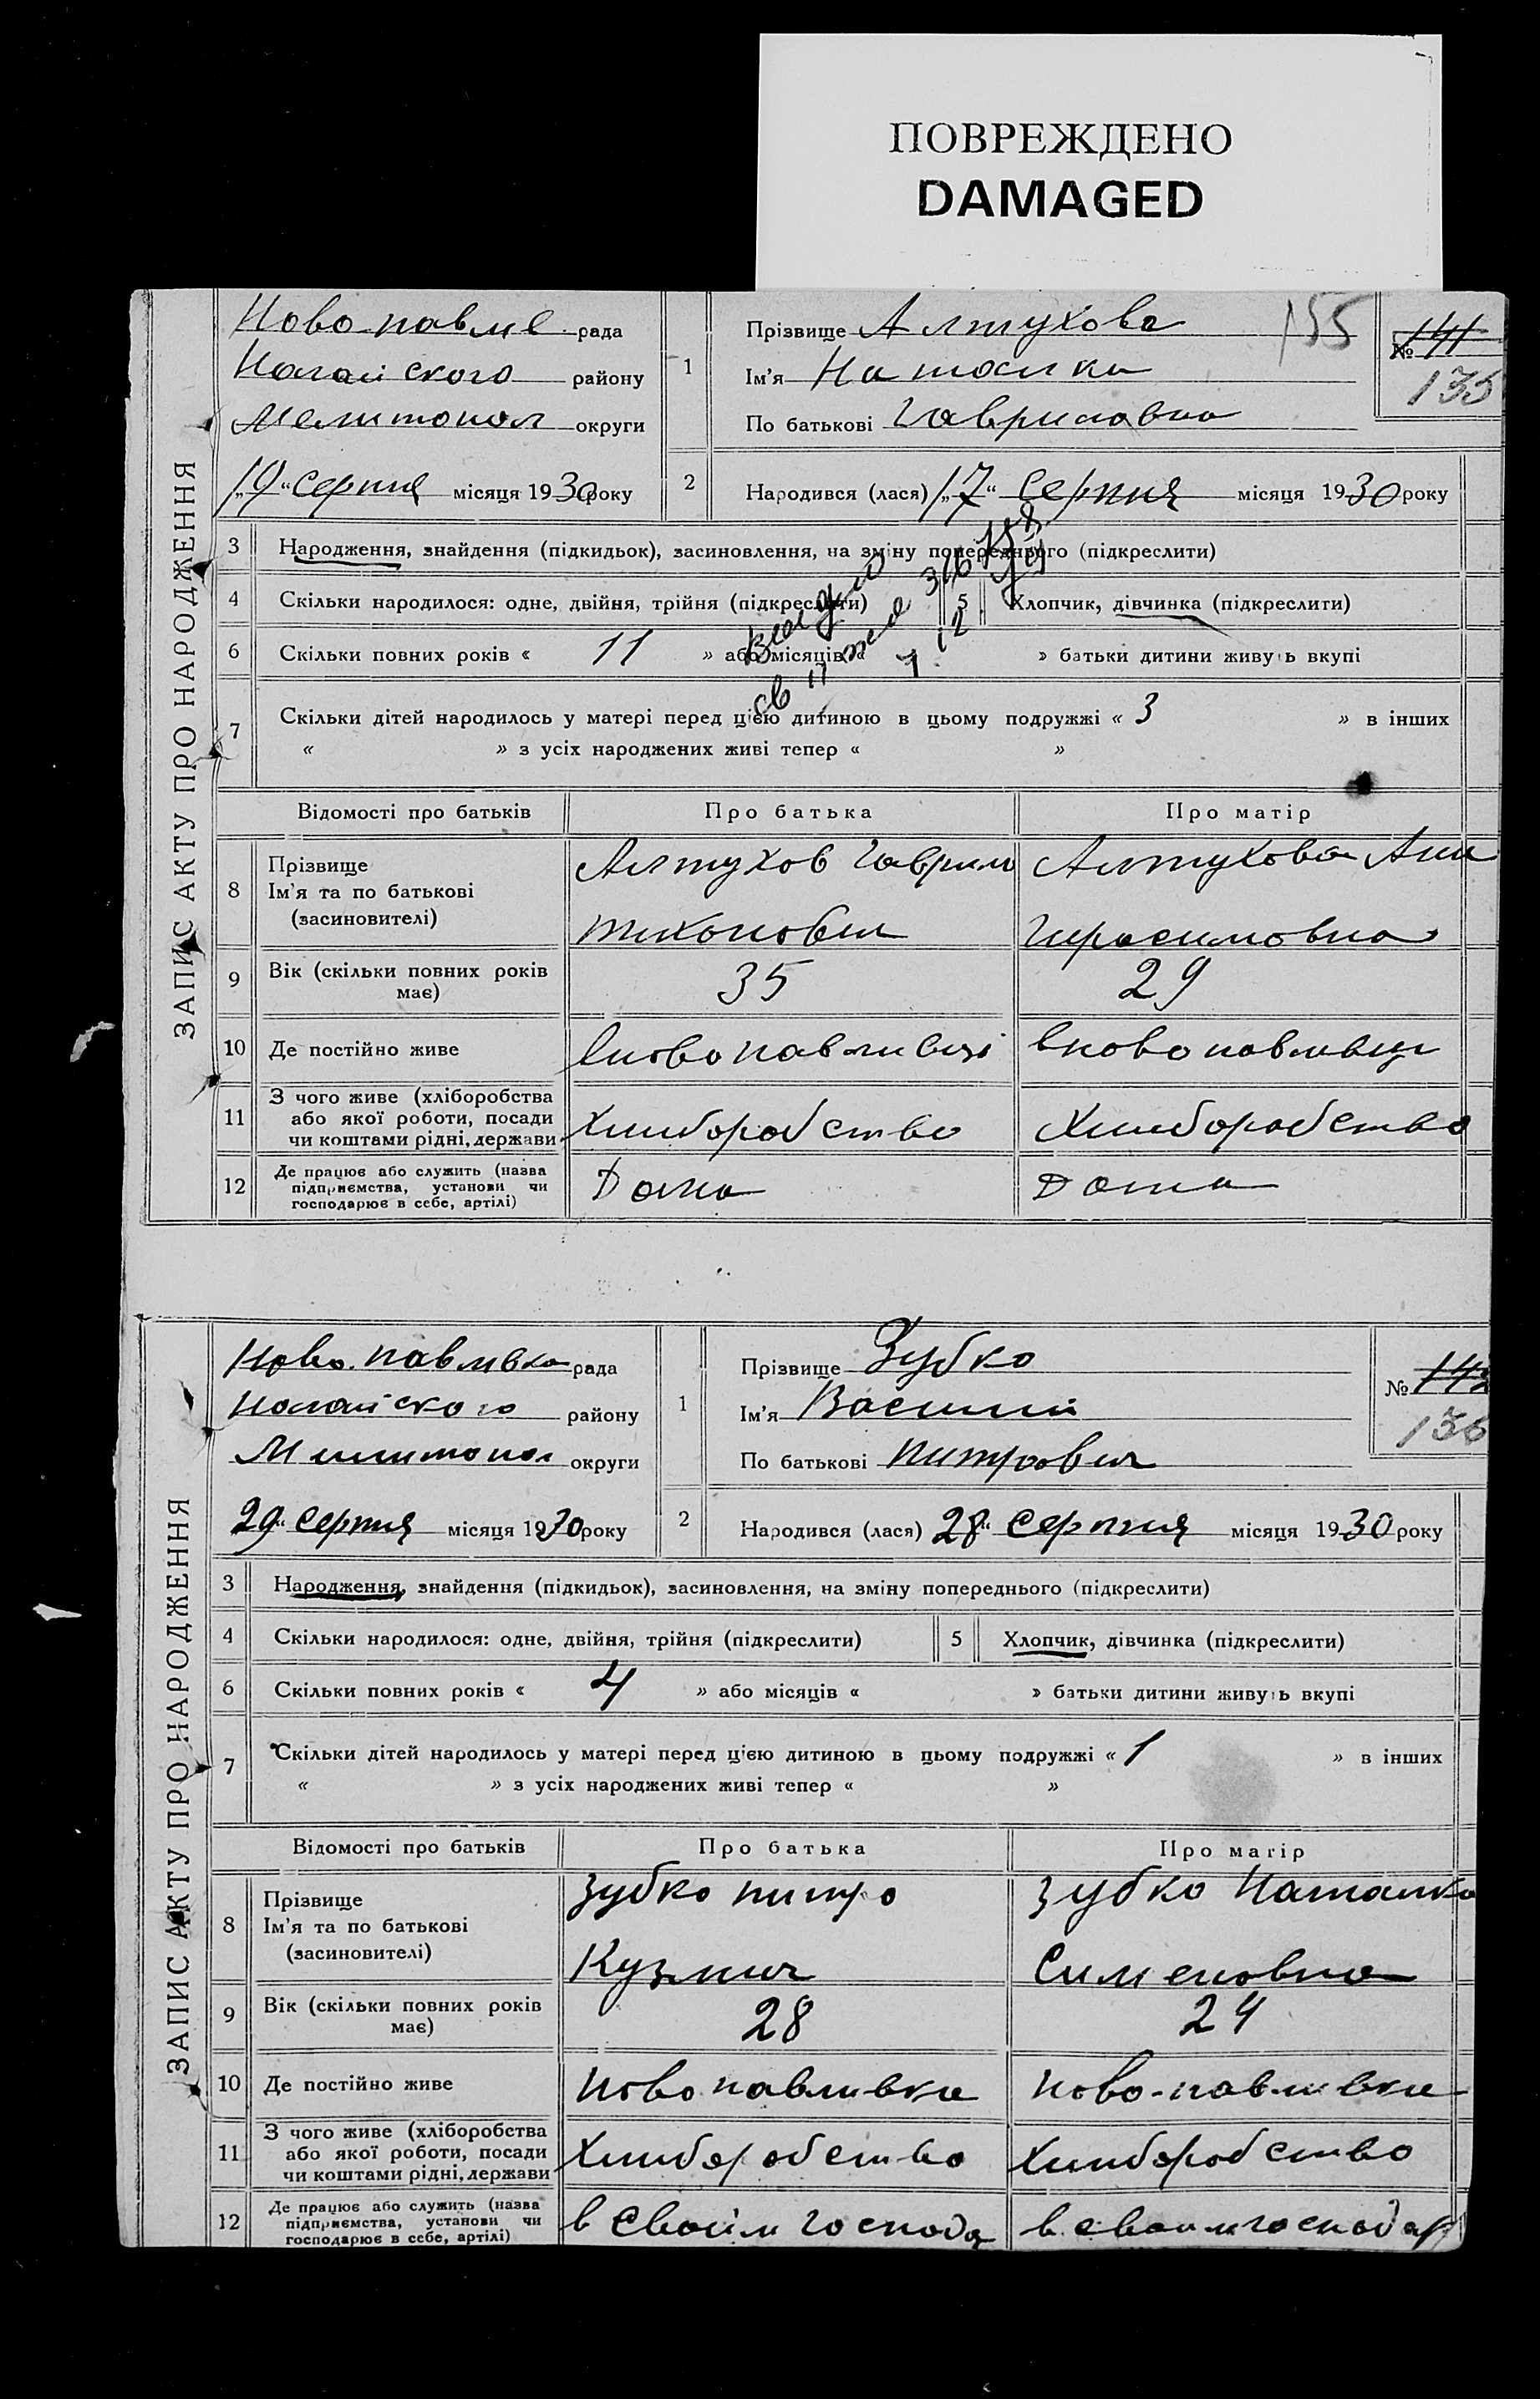 ПОВРЕЖДЕНО
DAMAGED
ЗАПИС АКТУ ПРО НАРОДЖЕННЯ
Ново-павлів рада
Ногайского району
Мелитопол округи
„19“ серпня місяця 1930 року
155
№ 141
135
1
Прізвище Алтухова
Ім'я Наталка
По батькові Гавриловна
2
Народився (лася) „17“ Серпня місяця 1930 року
3 Народження, знайдення (підкидьок), засиновлення, на зміну попереднього (підкреслити)
4 Скільки народилося: одне, двійня, трійня (підкреслити) 5 Хлопчик, дівчинка (підкреслити)
6 Скільки повних років « 11 » або місяців « » батьки дитини живуть вкупі
7 Скільки дітей народилось у матері перед цією дитиною в цьому подружжі « 3 » в інших
« » з усіх народжених живі тепер « »
Відомості про батьків Про батька Про матір
8 Прізвище
Ім'я та по батькові
(засновителі)
Алтухов Гаврило
тихонович
Алтухова Анна
Гирасимовна
9 Вік (скільки повних років
має)
35 29
10 Де постійно живе вново павливці вново павливци
11 З чого живе (хліборобства
або якої роботи, посади
чи коштами рідні, держави
Хлиборобство Хлиборобство
12 Де працює або служить (назва
підприємства, установи чи
господарює в себе, артілі)
Дома Дома
ЗАПИС АКТУ ПРО НАРОДЖЕННЯ
Ново-павлівка рада
Ногайского району
Милитопол округи
29“ серпня місяця 1930 року
№ 142
136
1
Прізвище Зубко
Ім'я Василий
По батькові Питрович
2
Народився (лася) 28“ Серпня місяця 1930 року
3 Народження, знайдення (підкидьок), засиновлення, на зміну попереднього (підкреслити)
4 Скільки народилося: одне, двійня, трійня (підкреслити) 5 Хлопчик, дівчинка (підкреслити)
6 Скільки повних років « 4 » або місяців « » батьки дитини живуть вкупі
7 Скільки дітей народилось у матері перед цією дитиною в цьому подружжі « 1 » в інших
« » з усіх народжених живі тепер « »
Відомості про батьків Про батька Про матір
8 Прізвище
Ім'я та по батькові
(засиновителі)
Зубко питро
Кузмич
Зубко Наталка
Сименовна
9 Вік (скільки повних років
має)
28 24
10 Де постійно живе Ново павливка Ново-павливка
11 З чого живе (хліборобства
або якої роботи, посади
чи коштами рідні, держави
Хлиборобство Хлиборобство
12 Де працює або служить (назва
підприємства, установи чи
господарює в себе, артілі)
в своїм господар в своим господар